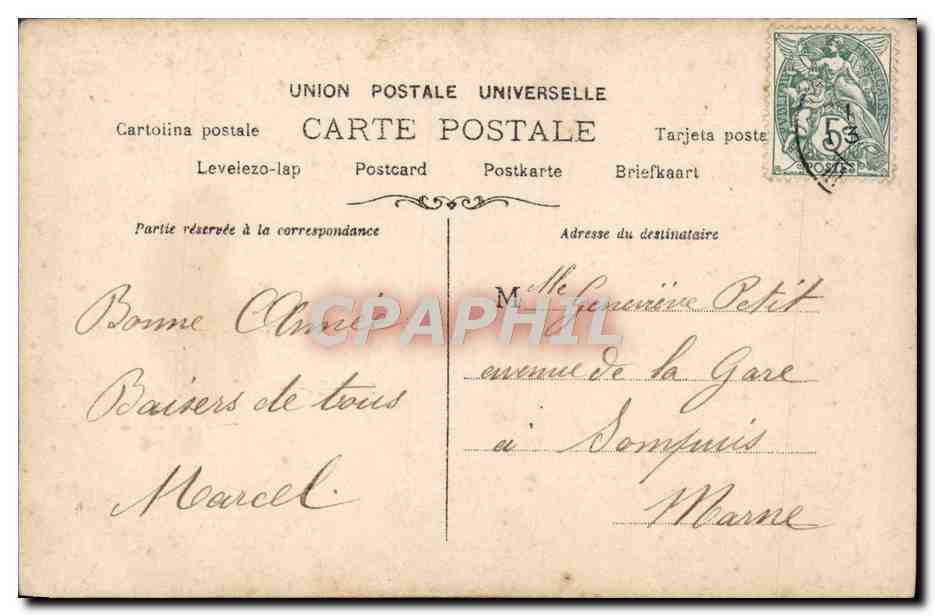 UNION POSTALE UNIVERSELLE
Cartolina postale CARTE POSTALE Tarjeta posta
Levelezo-lap Postcard Postkarte Briefkaart
Partie réservée à la correspondance
Bonne Année
Baisers de tous
Marcel
Adresse du destinataire
Mlle Geneviève Petit
avenue de la Gare
à Sompuis
Marne
5
POSTES
CPAPHIL